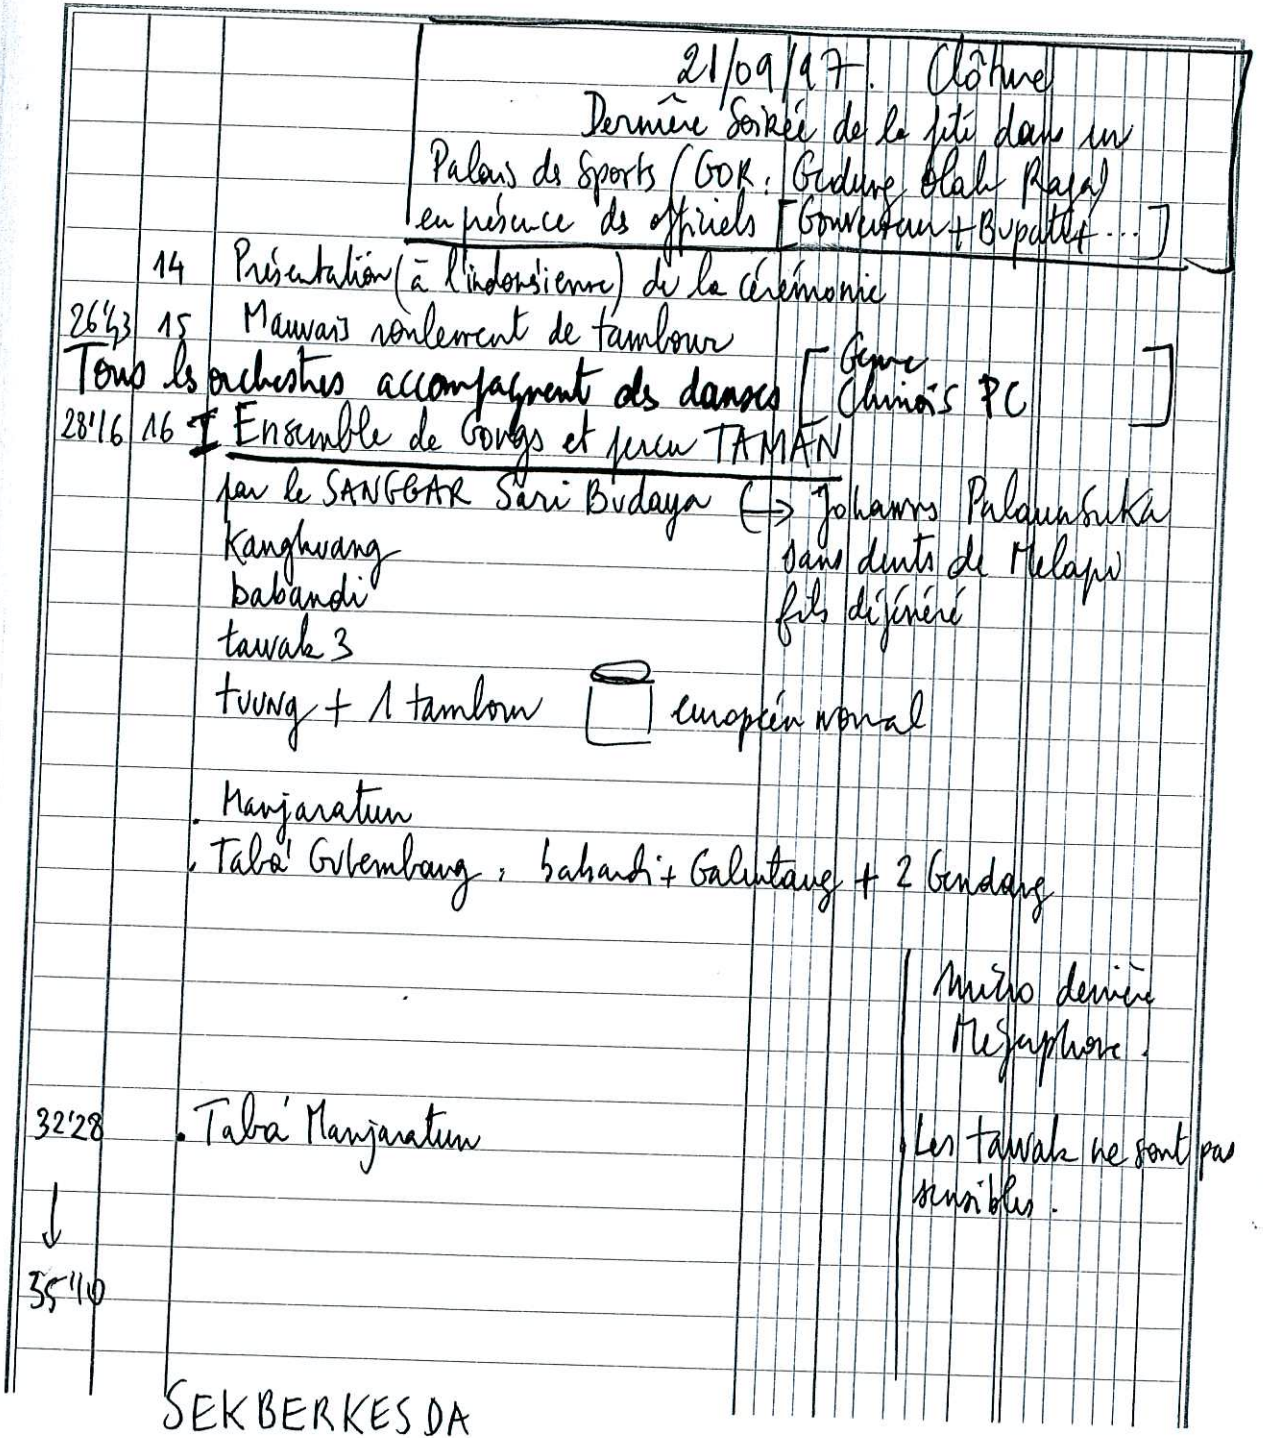 21/09/97. Clôture
Dernière Soirée de la fête dans un
Palais des Sports (GOR: Gedung Olah Raga)
en présence des officiels [Gouverneur + Bupati + ...]
14 Présentation (à l'indonésienne) de la cérémonie
26'43 15 Mauvais roulement de tambour
Tous les orchestres accompagnent des danses [Genre
Chinois PC]
28'16 16 I Ensemble de Gongs et percu TAMAN
par le SANGGAR Sari Budaya (→ Johannes Palaunsuka
Kangkuang sans dents de Melapi
babandi fils dégénéré
tawak 3
tuung + 1 tambour européen normal
. Manjaratun
. Taba' Gulembang, babandi + Galintang + 2 Gendang
Micro derrière
Mégaphone.
32'28 . Taba' Manjaratun Les tawak ne sont pas
↓ sensibles.
35'10
SEKBERKESDA